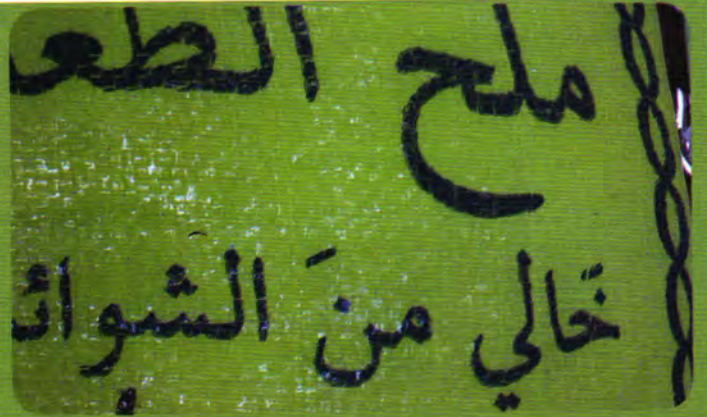 ملح الطعـ
خَالي منَ الشوائـ